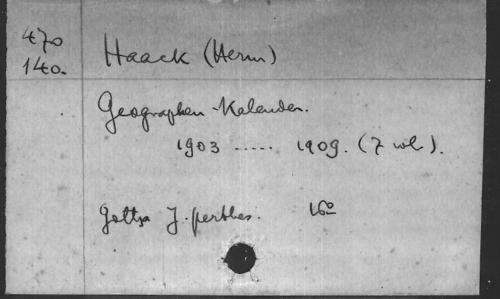 470
140.
Haack (Herm)
Geographen-Kalender.
1903 ..... 1909. (7 vol.).
Gotha J. perthes. 16º